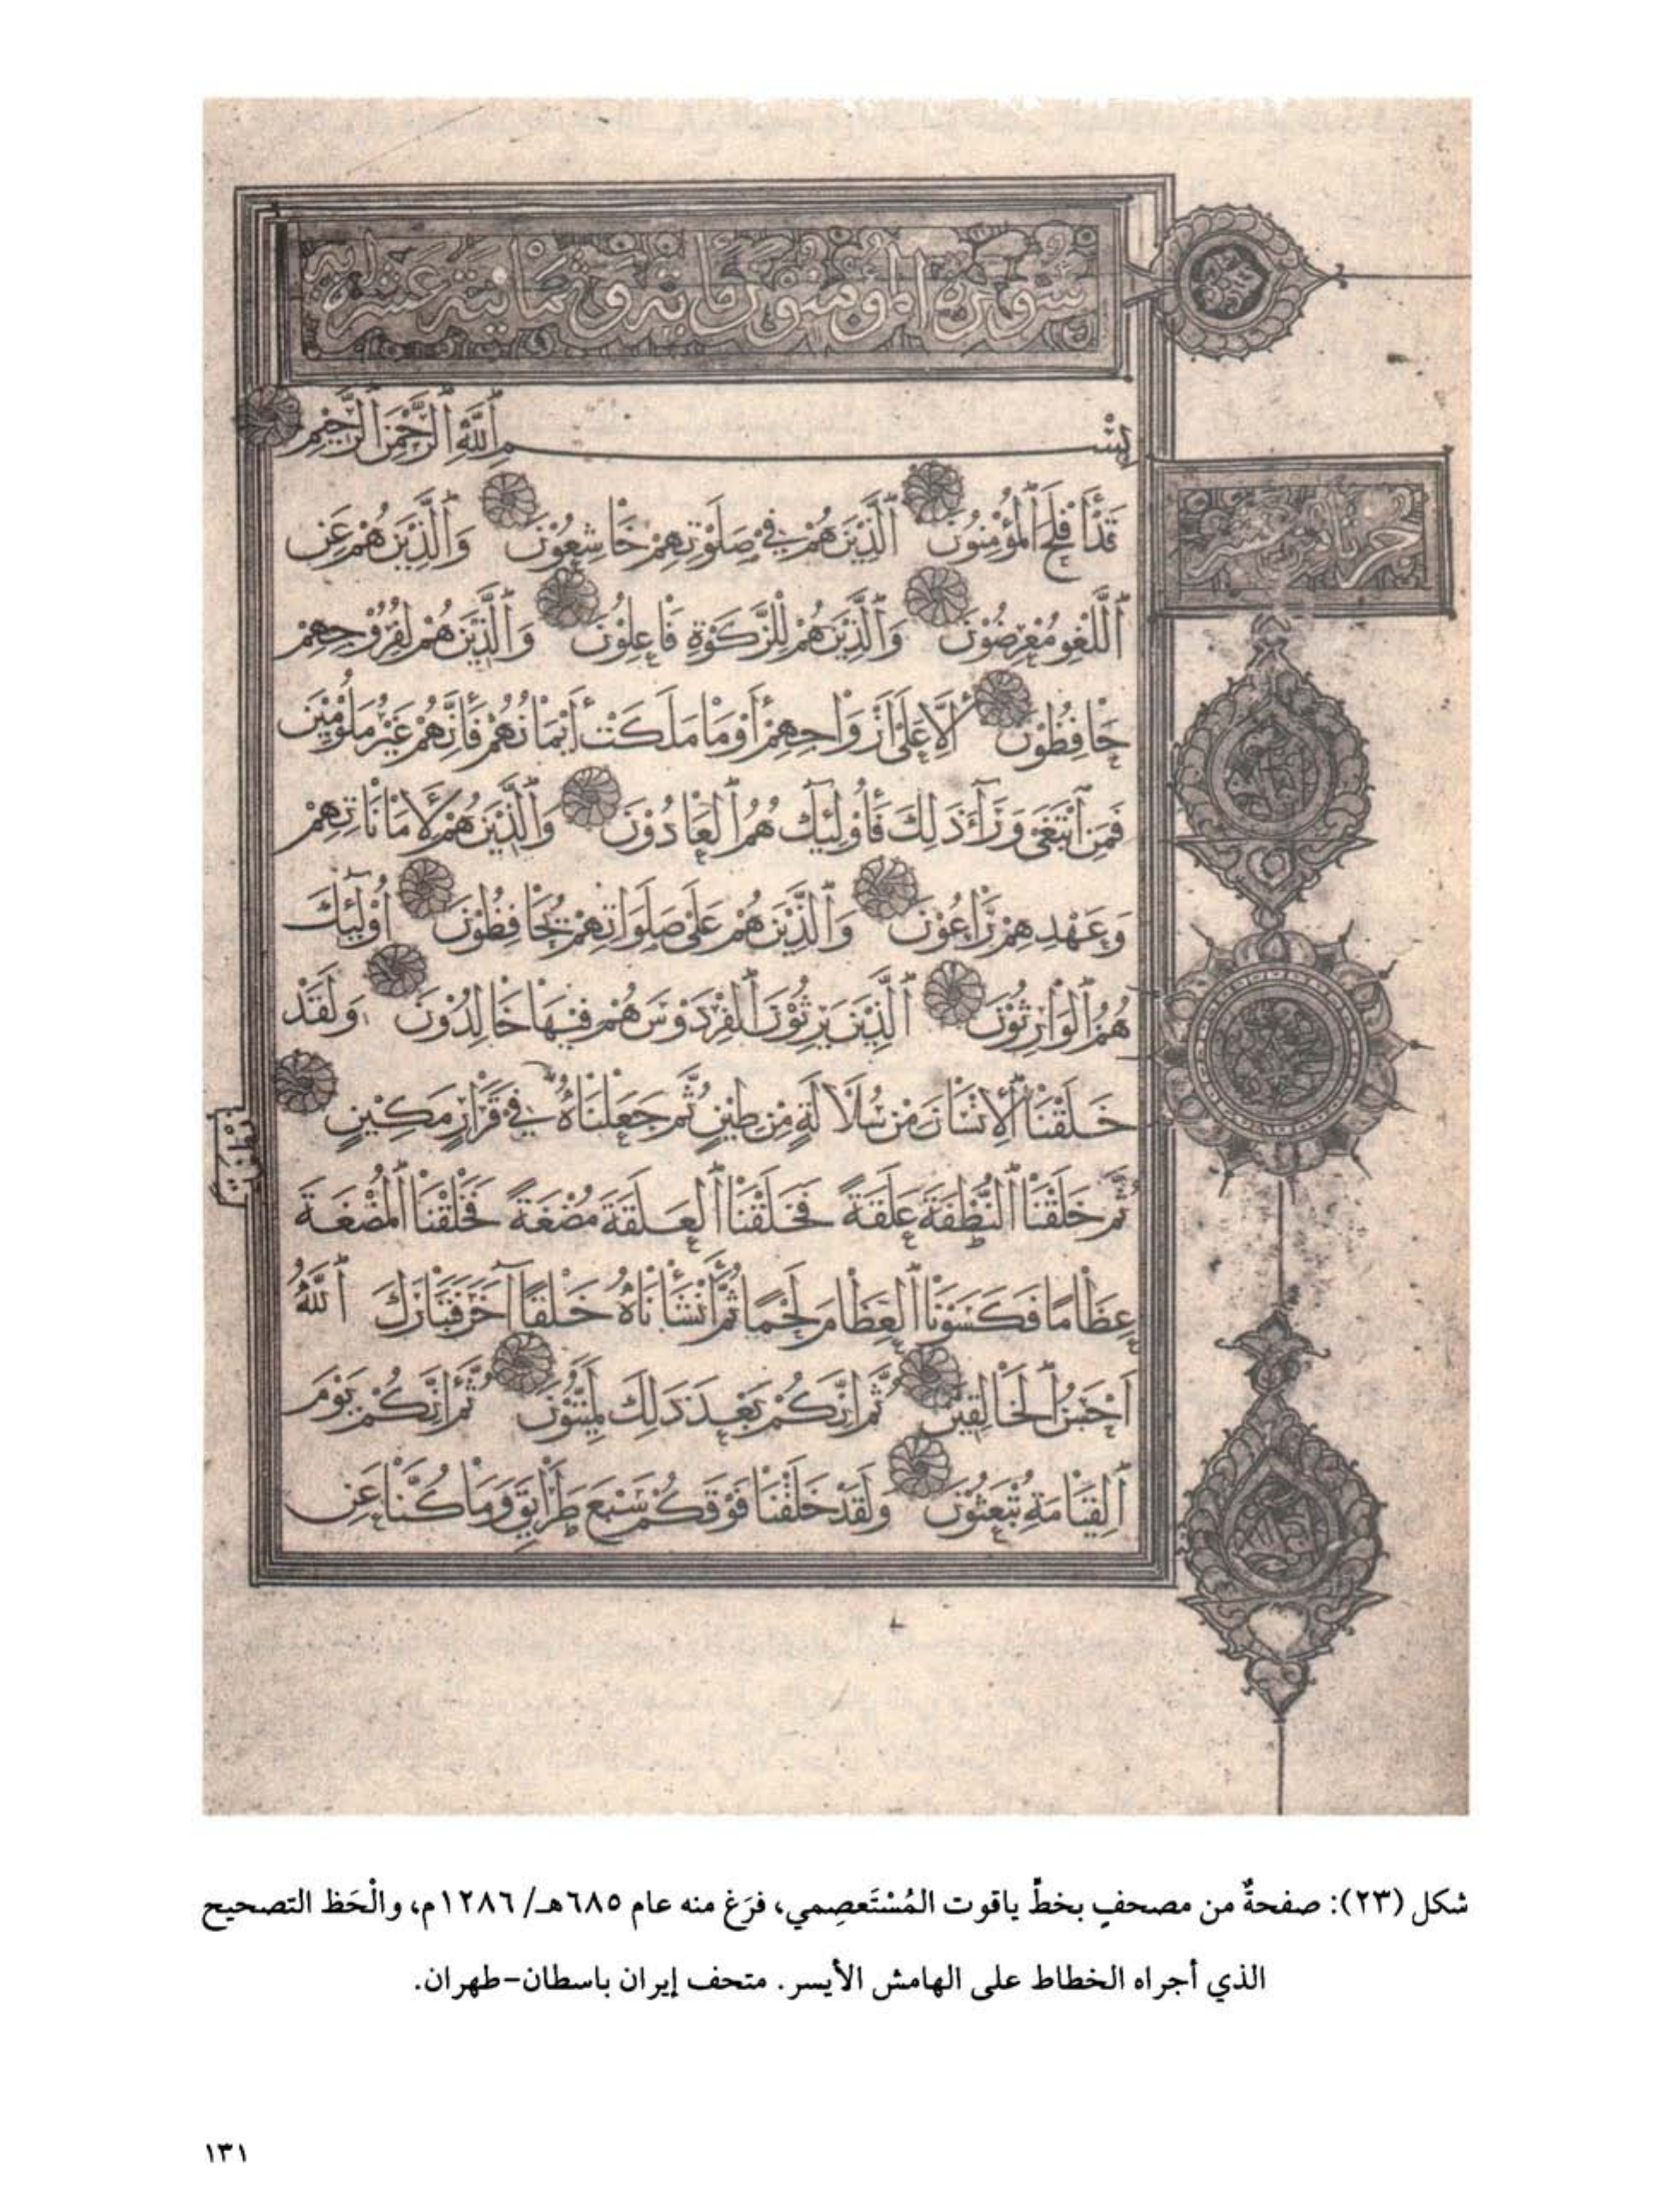 سورة المؤمنون مائة وثمانية عشر اية
بِسْمِ ٱللَّهِ ٱلرَّحْمٰنِ ٱلرَّحِيْمِ
قَدْ أَفْلَحَ ٱلْمُؤْمِنُوْنَ ٱلَّذِيْنَ هُمْ فِيْ صَلَوٰتِهِمْ خَاشِعُوْنَ وَٱلَّذِيْنَ هُمْ عَنِ
ٱللَّغْوِ مُعْرِضُوْنَ وَٱلَّذِيْنَ هُمْ لِلزَّكَوٰةِ فَاعِلُوْنَ وَٱلَّذِيْنَ هُمْ لِفُرُوْجِهِمْ
حَافِظُوْنَ إِلَّا عَلَىٰ أَزْوَاجِهِمْ أَوْ مَا مَلَكَتْ أَيْمَانُهُمْ فَإِنَّهُمْ غَيْرُ مَلُوْمِيْنَ
فَمَنِ ٱبْتَغَىٰ وَرَآءَ ذَلِكَ فَأُولَئِكَ هُمُ ٱلْعَادُوْنَ وَٱلَّذِيْنَ هُمْ لِأَمَانَاتِهِمْ
وَعَهْدِهِمْ رَاعُوْنَ وَٱلَّذِيْنَ هُمْ عَلَىٰ صَلَوَاتِهِمْ يُحَافِظُوْنَ أُوْلَٰٓئِكَ
هُمُ ٱلْوَارِثُوْنَ ٱلَّذِيْنَ يَرِثُوْنَ ٱلْفِرْدَوْسَ هُمْ فِيْهَا خَالِدُوْنَ وَلَقَدْ
خَلَقْنَا ٱلْإِنْسَانَ مِنْ سُلَالَةٍ مِنْ طِيْنٍ ثُمَّ جَعَلْنَاهُ فِيْ قَرَارٍ مَكِيْنٍ
نُطْفَةً
ثُمَّ خَلَقْنَا ٱلنُّطْفَةَ عَلَقَةً فَخَلَقْنَا ٱلْعَلَقَةَ مُضْغَةً فَخَلَقْنَا ٱلْمُضْغَةَ
عِظَامًا فَكَسَوْنَا ٱلْعِظَامَ لَحْمًا ثُمَّ أَنْشَأْنَاهُ خَلْقًا آخَرَ فَتَبَارَكَ ٱللَّهُ
أَحْسَنُ ٱلْخَالِقِيْنَ ثُمَّ إِنَّكُمْ بَعْدَ ذَلِكَ لَمَيِّتُوْنَ ثُمَّ إِنَّكُمْ يَوْمَ
ٱلْقِيَامَةِ تُبْعَثُوْنَ وَلَقَدْ خَلَقْنَا فَوْقَكُمْ سَبْعَ طَرَائِقَ وَمَا كُنَّا عَنِ
شكل (٢٣): صفحةٌ من مصحفٍ بخطِّ ياقوت المُسْتَعصِمي، فرَغ منه عام ٦٨٥هـ/ ١٢٨٦م، والْحَظ التصحيح
الذي أجراه الخطاط على الهامش الأيسر. متحف إيران باسطان-طهران.
١٣١